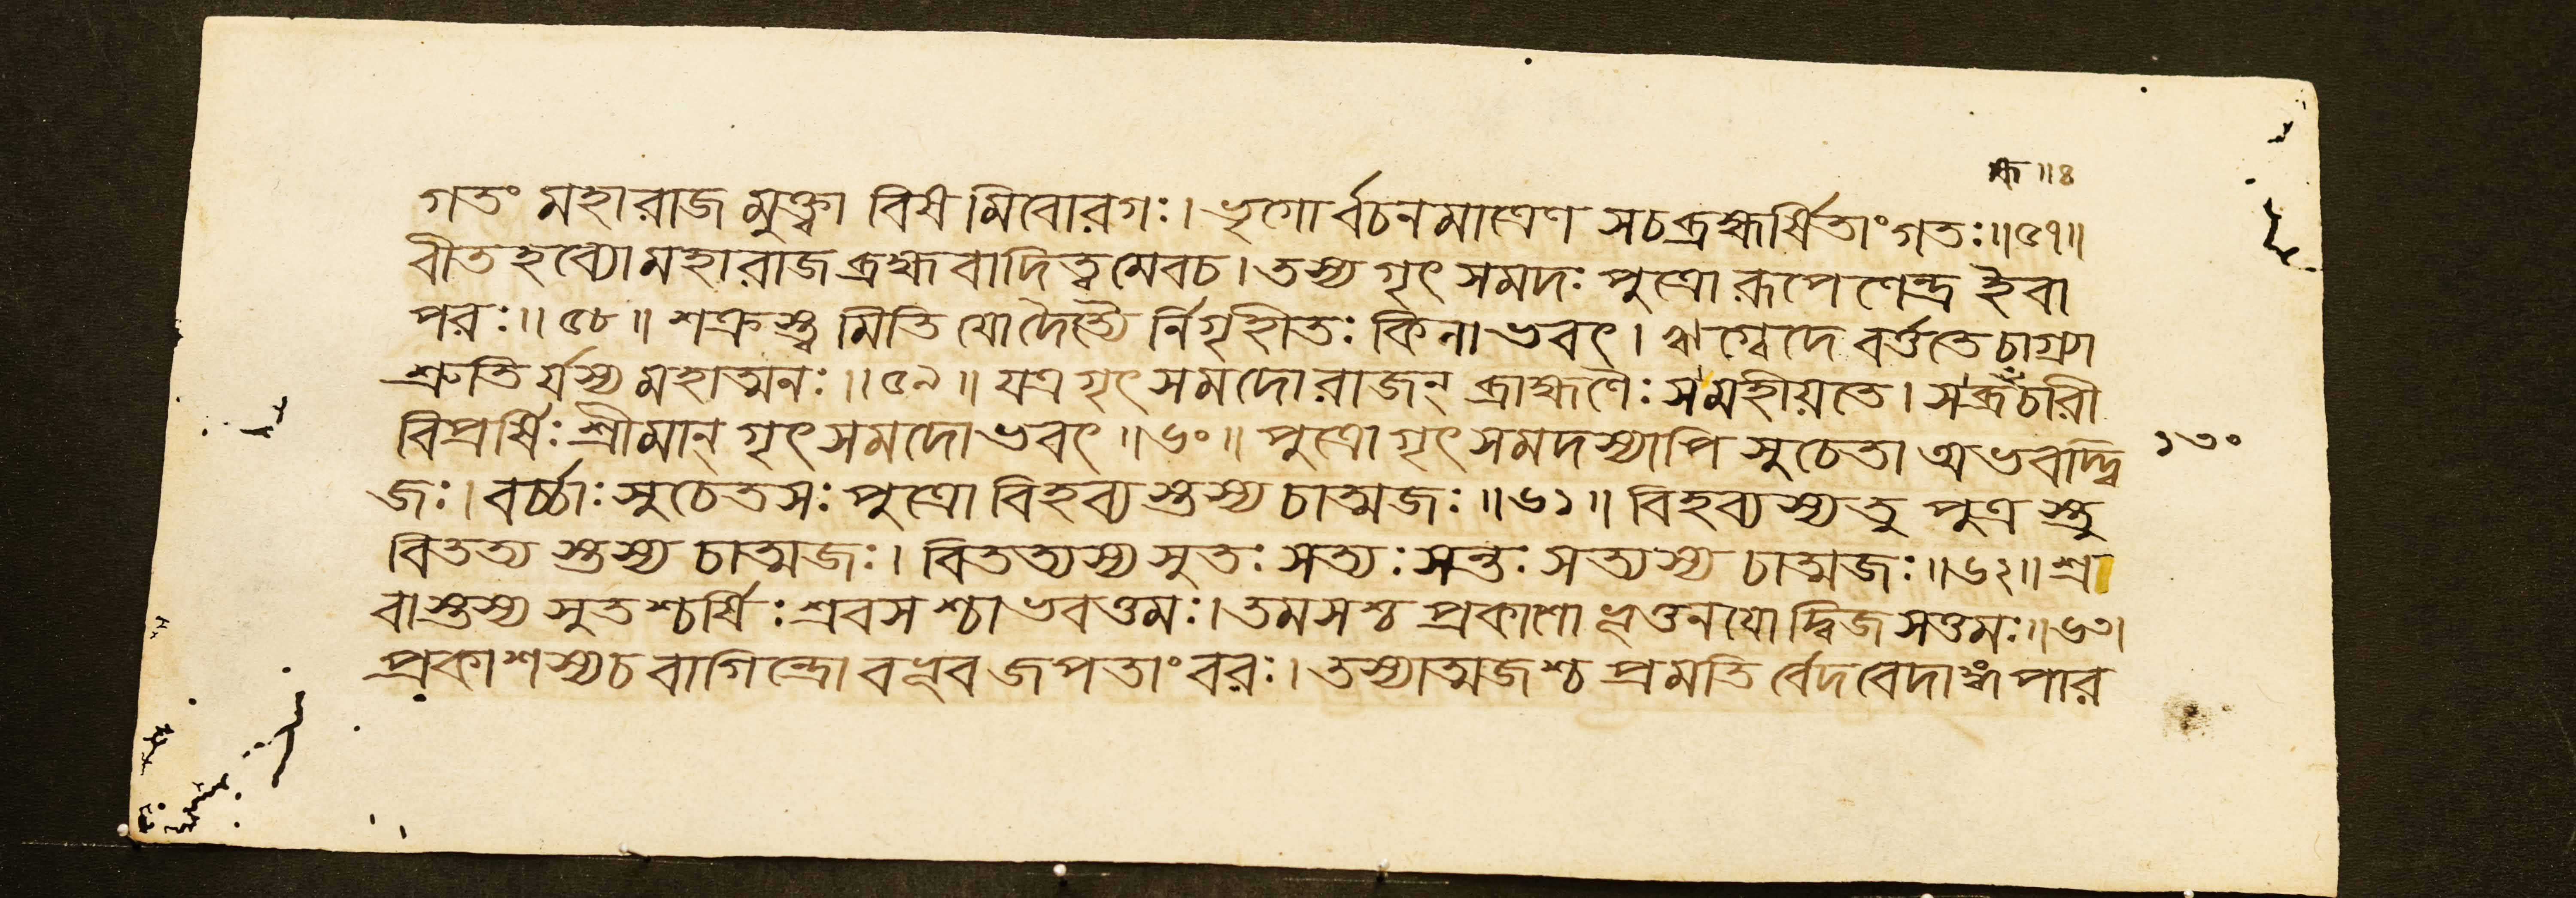 হ্ম ॥৪
গতং মহারাজ মুক্ত্বা বিষমিবোরগঃ। ভৃগোর্বচনমাত্রেণ সচব্রহ্মর্ষিতাং গতঃ॥৫৭॥
বীতহব্যো মহারাজ ব্রহ্মবাদিত্বমেবচ। তস্য গৃৎসমদঃ পুত্রো রূপেণেন্দ্র ইবা
পরঃ॥৫৮॥ শক্রস্ত্বমিতি যো দৈত্যৈর্নিগৃহীতঃ কিলাভবৎ। ঋগ্বেদে বর্ত্ততে চাগ্র্যা
শ্রুতির্যস্য মহাত্মনঃ॥৫৯॥ যত্র গৃৎসমদো রাজন্ ব্রাহ্মণৈঃ স মহীয়তে। স ব্রচারী
বিপ্রর্ষিঃ শ্রীমান্ গৃৎসমদোভবৎ॥৬০॥ পুত্রো গৃৎসমদস্যাপি সুচেতা অভবদ্দ্বি
১৩০
জঃ। বর্চ্চাঃ সুচেতসঃ পুত্রো বিহব্যস্তস্য চাত্মজঃ॥৬১॥ বিহব্যস্যতু পুত্রস্তু
বিতত্যস্তস্য চাত্মজঃ। বিতত্যস্য সুতঃ সত্যঃ সন্তঃ সত্যস্য চাত্মজঃ॥৬২॥ শ্র
বাস্তস্য সুতশ্চর্ষিঃ শ্রবসশ্চাভবত্তমঃ। তমসশ্চ প্রকাশোভূত্তনযো দ্বিজসত্তমঃ॥৬৩।
প্রকাশস্যচ বাগিন্দ্রো বভূব জপতাং বরঃ। তস্যাত্মজশ্চ প্রমতির্বেদবেদাঙ্গপার